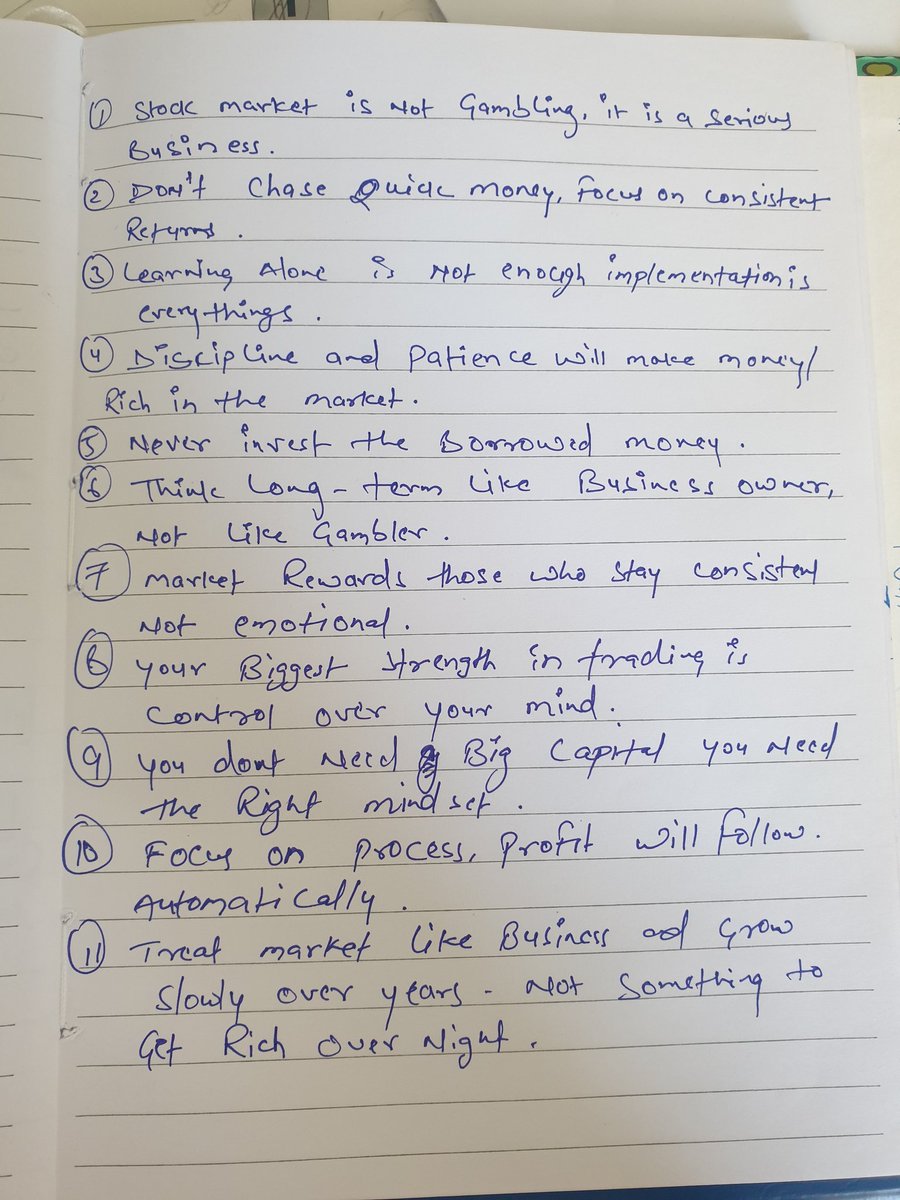 ① Stock market is Not Gambling, it is a Serious
Business.
② DON't Chase Quick money, Focus on consistent
Returns.
③ Learning Alone is Not enough implementation is
everythings.
④ Discipline and Patience will make money/
Rich in the market.
⑤ Never invest the Borrowed money.
⑥ Think Long-term Like Business owner,
Not Like Gambler.
⑦ market Rewards those who stay consistent
Not emotional.
⑧ your Biggest Strength in trading is
Control over your mind.
⑨ you dont Need Big Capital you Need
the Right mindset.
⑩ Focus on process, Profit will follow.
Automatically.
⑪ Treat market Like Business and Grow
Slowly over years - Not Something to
Get Rich Over Night.